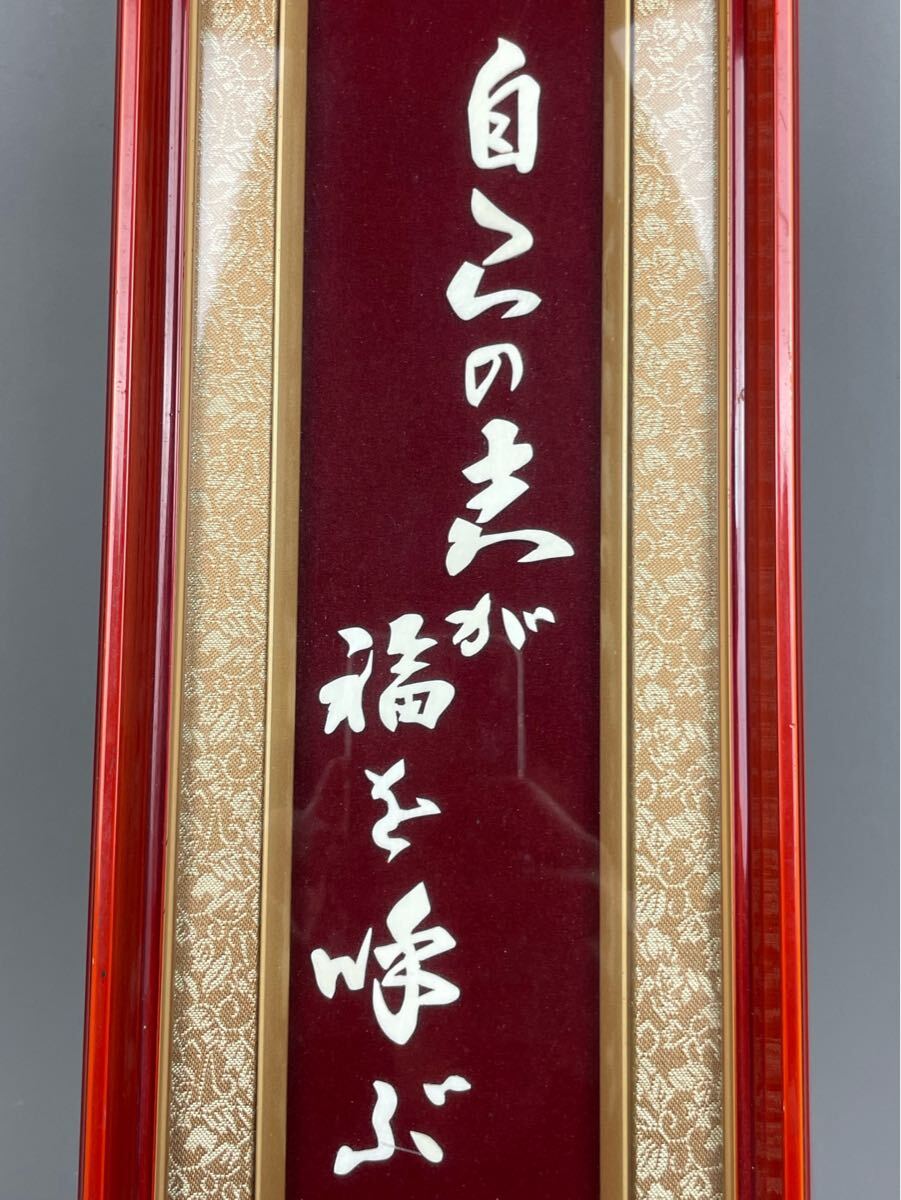 自らの志が
福を呼ぶ